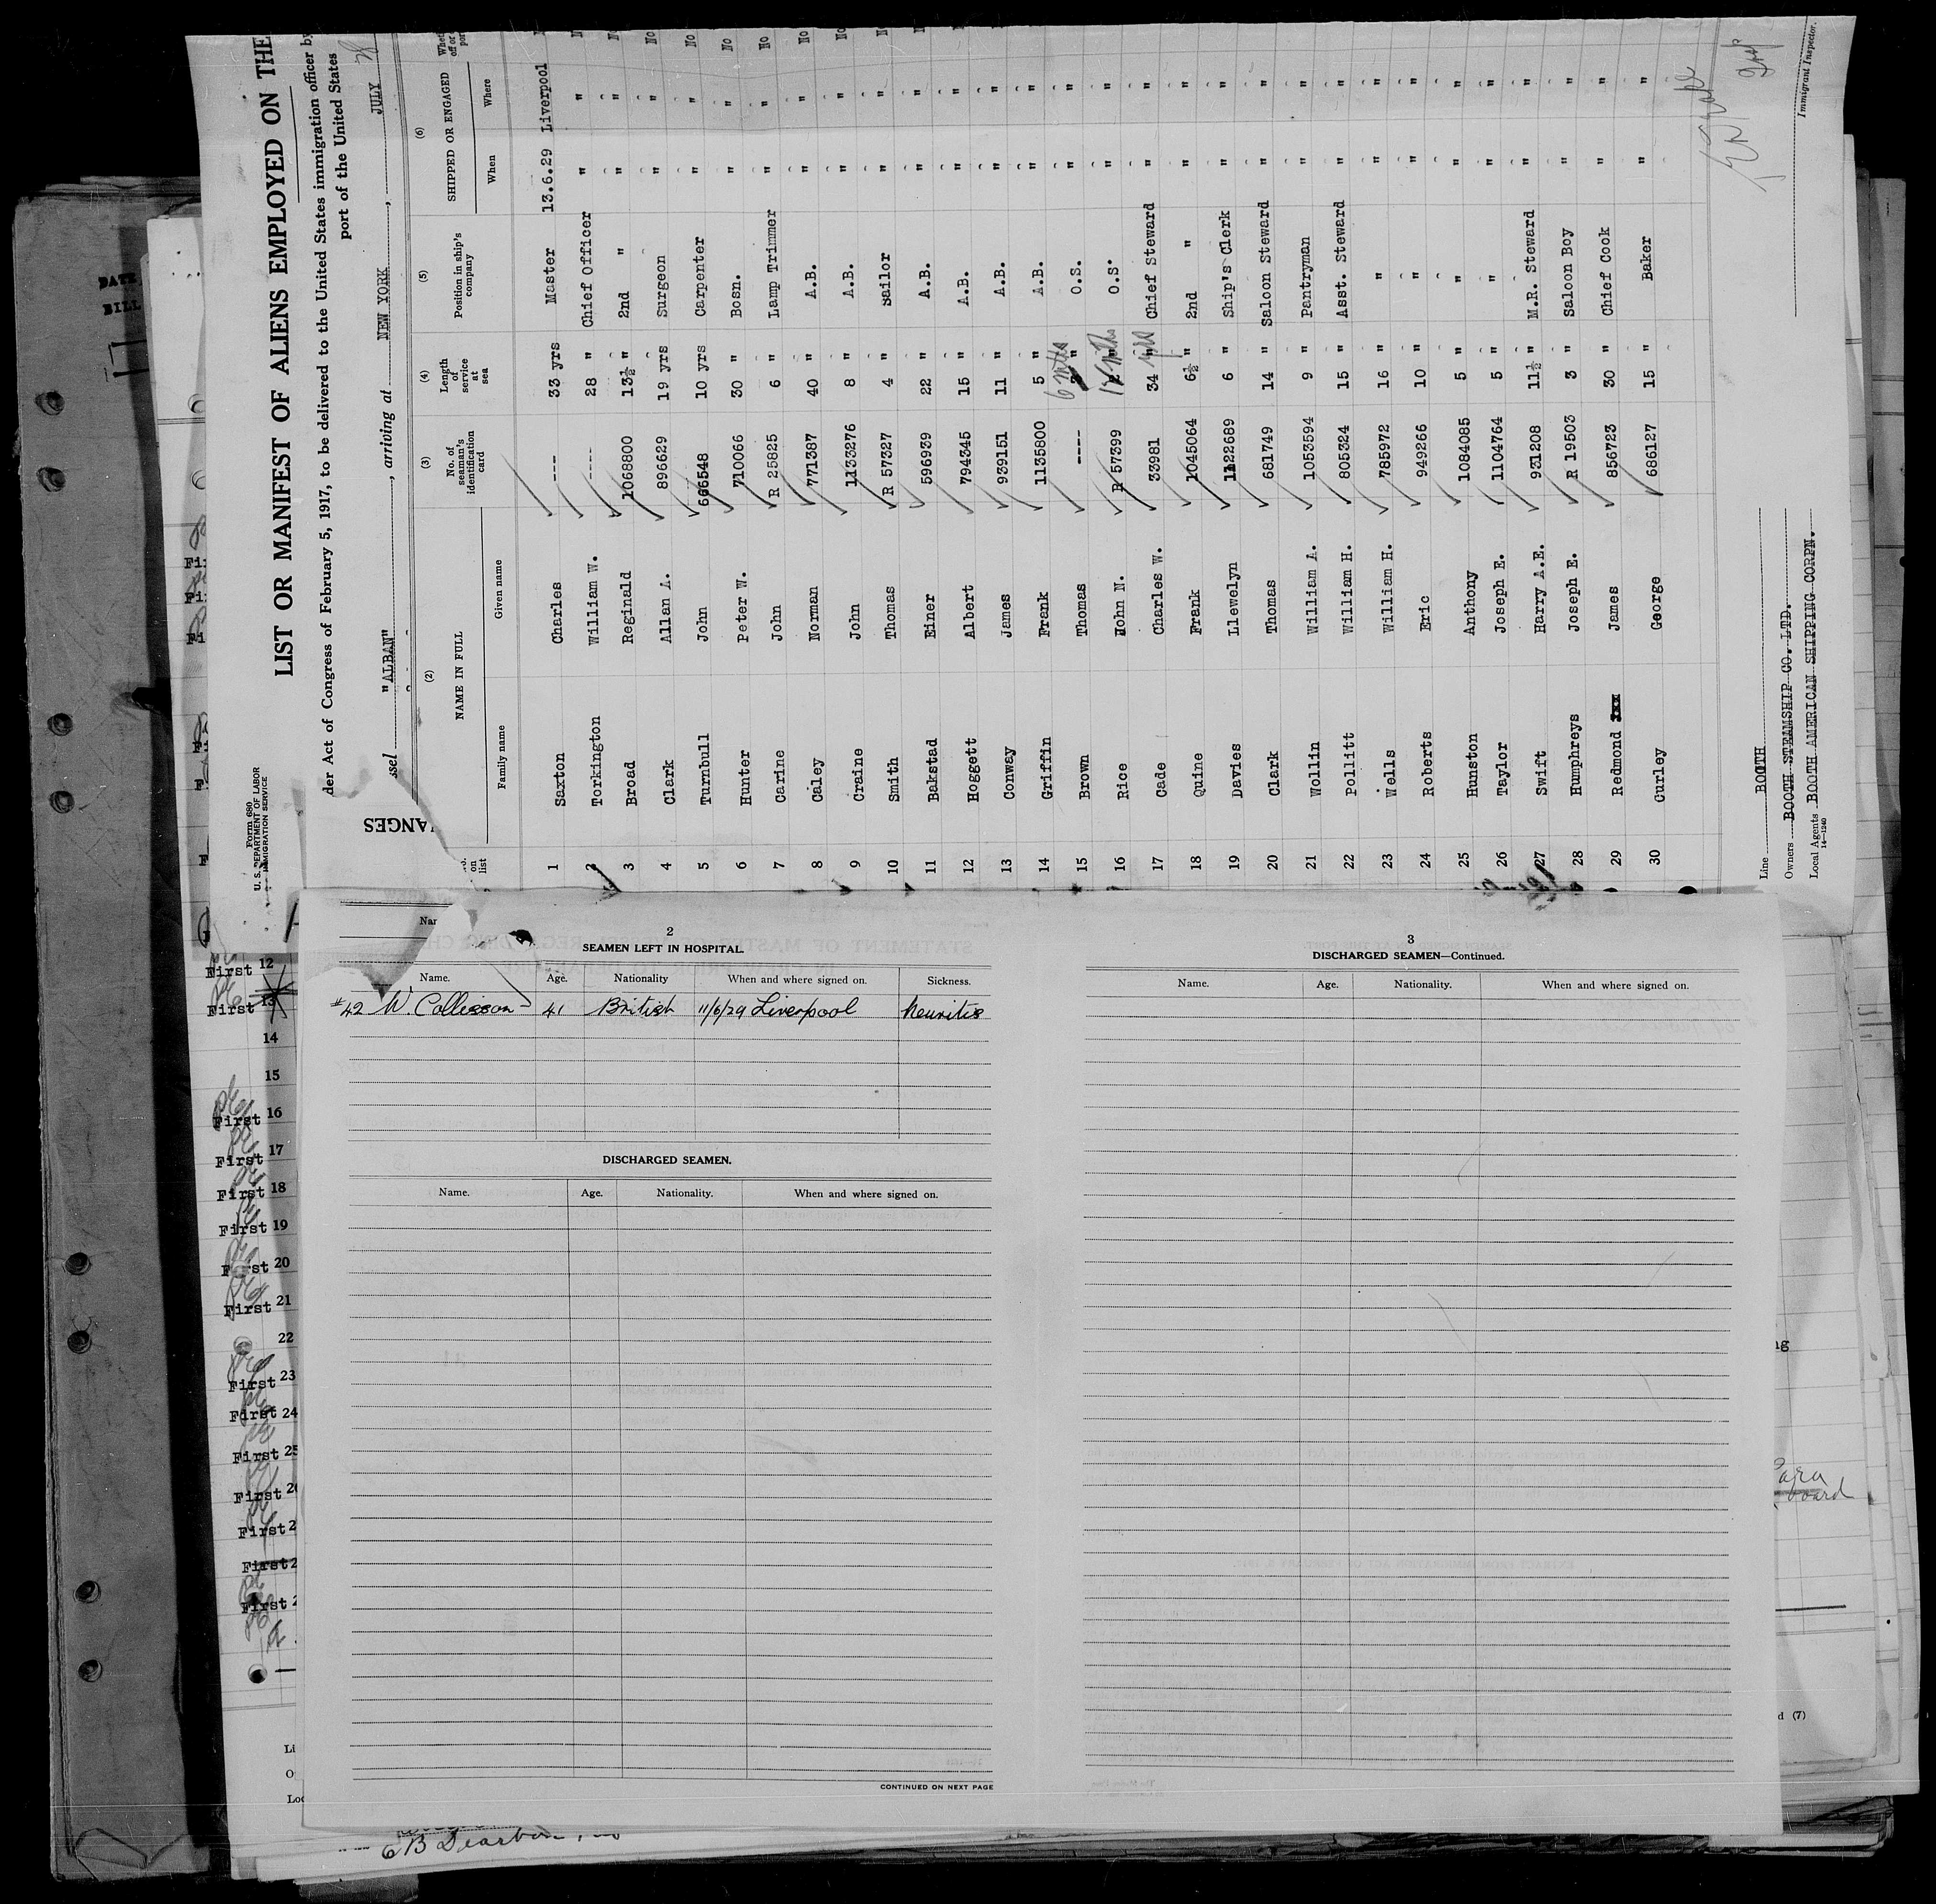 Form 680
U. S. DEPARTMENT OF LABOR
IMMIGRATION SERVICE
LIST OR MANIFEST OF ALIENS EMPLOYED ON THE
der Act of Congress of February 5, 1917, to be delivered to the United States immigration officer by
port of the United States
ssel "ALBAN", arriving at NEW YORK, JULY
ANGES
(2) (3) (4) (5) (6)
No. on list NAME IN FULL No. of seaman's identification card Length of service at sea Position in ship's company SHIPPED OR ENGAGED
Family name Given name When Where
1 Saxton Charles --- 33 yrs Master 13.6.29 Liverpool No
2 Torkington William W. ---- 28 " Chief Officer " " No
3 Broad Reginald 1068800 13½ " 2nd " " " No
4 Clark Allan A. 896629 19 yrs Surgeon " " No
5 Turnbull John 666548 10 yrs Carpenter " " No
6 Hunter Peter W. 710066 30 " Bosn. " " No
7 Carine John R 25825 6 " Lamp Trimmer " " No
8 Caley Norman 771387 40 " A.B. " " No
9 Craine John 1133276 8 " A.B. " " No
10 Smith Thomas R 57327 4 " Sailor " " No
11 Bakstad Einer 596939 22 " A.B. " " No
12 Hoggett Albert 794345 15 " A.B. " " No
13 Conway James 939151 11 " A.B. " " No
14 Griffin Frank 1135800 5 " A.B. " " No
15 Brown Thomas ---- 6 mths " O.S. " " No
16 Rice John N. R 57399 " O.S. " " No
17 Cade Charles W. 33981 34 " Chief Steward " " No
18 Quine Frank 1045064 6½ " 2nd " " " No
19 Davies Llewelyn 1122689 6 " Ship's Clerk " "
20 Clark Thomas 681749 14 " Saloon Steward " "
21 Wollin William A. 1053594 9 " Pantryman " "
22 Pollitt William H. 805324 15 " Asst. Steward " "
23 Wells William H. 785972 16 " " " "
24 Roberts Eric 949266 10 " " " "
25 Hunston Anthony 1084085 5 " " " "
26 Taylor Joseph E. 1104764 5 " " " "
27 Swift Harry A.E. 931208 11½ " M.R. Steward " "
28 Humphreys Joseph E. R 19503 3 " Saloon Boy " "
29 Redmond James 856723 30 " Chief Cook " "
30 Curley George 686127 15 " Baker " "
Line BOOTH
Owners BOOTH STEAMSHIP CO. LTD.
Local Agents BOOTH AMERICAN SHIPPING CORPN.
14—1240
Immigrant Inspector.
DATE
BILL
Nar
2
SEAMEN LEFT IN HOSPITAL.
Name. Age. Nationality When and where signed on. Sickness.
#42 W. Collisson 41 British 11/6/29 Liverpool Neuritis
DISCHARGED SEAMEN.
Name. Age. Nationality. When and where signed on.
CONTINUED ON NEXT PAGE
3
DISCHARGED SEAMEN—Continued.
Name. Age. Nationality. When and where signed on.
First 12
First 13
14
15
First 16
First 17
First 18
First 19
First 20
First 21
22
First 23
First 24
First 25
First 2
First 2
First 2
First 2
Li
O
Loc
ng
Para
board
d (7)
E B Dearborn